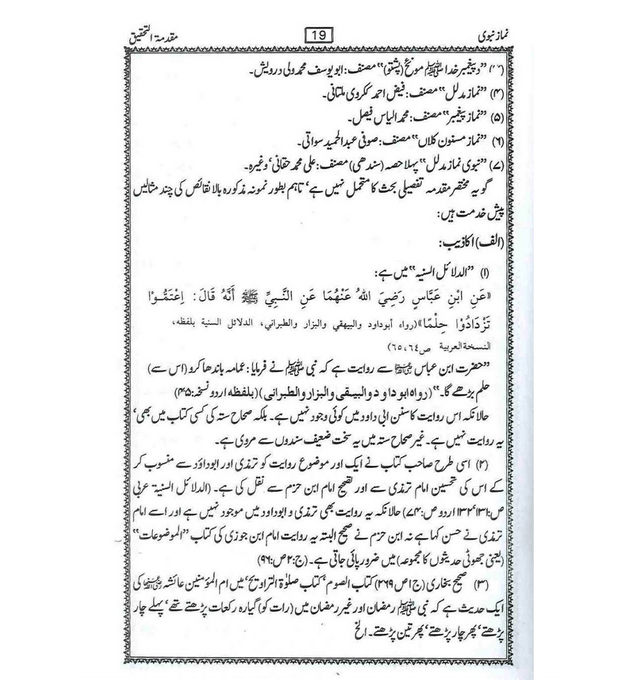 نماز نبوی 19 مقدمۃ التحقیق
(۳) ”د پیغمبر خدا ﷺ مونځ (پشتو)“ مصنف: ابو یوسف محمد ولی درویش۔
(۴) ”نماز مدلل“ مصنف: فیض احمد ککروی ملتانی۔
(۵) ”نماز پیغمبر“ مصنف: محمد الیاس فیصل۔
(۶) ”نماز مسنون کلاں“ مصنف: صوفی عبد الحمید سواتی۔
(۷) ”نبوی نماز مدلل“ پہلا حصہ (سندھی) مصنف: علی محمد حقانی‘ وغیرہ۔
گو یہ مختصر مقدمہ تفصیلی بحث کا متحمل نہیں ہے‘ تاہم بطور نمونہ مذکورہ بالا نقائص کی چند مثالیں
پیش خدمت ہیں:
(الف) اکاذیب:
(۱) ”الدلائل السنیہ“ میں ہے:
«عَنِ ابْنِ عَبَّاسٍ رَضِيَ اللهُ عَنْهُمَا عَنِ النَّبِيِّ ﷺ أَنَّهُ قَالَ: اِعْتَمُّوْا
تَزْدَادُوْا حِلْمًا»(رواه أبوداود والبيهقي والبزار والطبراني، الدلائل السنية بلفظه،
النسخة العربية ص٦٤،٦٥)
”حضرت ابن عباس ؓ سے روایت ہے کہ نبی ﷺ نے فرمایا: عمامہ باندھا کرو (اس سے)
حلم بڑھے گا۔“ (رواہ ابو داود والبیہقی والبزار والطبرانی) (بلفظہ اردو نسخہ: ۴۵)
حالانکہ اس روایت کا سنن ابی داود میں کوئی وجود نہیں ہے۔ بلکہ صحاح ستہ کی کسی کتاب میں بھی‘
یہ روایت نہیں ہے۔ غیر صحاح ستہ میں یہ سخت ضعیف سندوں سے مروی ہے۔
(۲) اسی طرح صاحب کتاب نے ایک اور موضوع روایت کو ترمذی اور ابوداؤد سے منسوب کر
کے اس کی تحسین امام ترمذی سے اور تصحیح امام ابن حزم سے نقل کی ہے۔ (الدلائل السنیۃ عربی
ص:۱۳۱‘ ۱۳۲ اردو ص:۷۴) حالانکہ یہ روایت بھی ترمذی و ابوداود میں موجود نہیں ہے اور اسے امام
ترمذی نے حسن کہا ہے نہ ابن حزم نے صحیح البتہ یہ روایت امام ابن جوزی کی کتاب ”الموضوعات“
(یعنی جھوٹی حدیثوں کا مجموعہ) میں ضرور پائی جاتی ہے۔ (ج:۲ ص:۹۶)
(۳) صحیح بخاری (ج۱ ص۲۶۹) کتاب الصوم‘ کتاب صلوٰۃ التراویح‘ میں ام المؤمنین عائشہ ؓ کی
ایک حدیث ہے کہ نبی ﷺ رمضان اور غیر رمضان میں (رات کو) گیارہ رکعات پڑھتے تھے‘ پہلے چار
پڑھتے‘ پھر چار پڑھتے‘ پھر تین پڑھتے۔ الخ